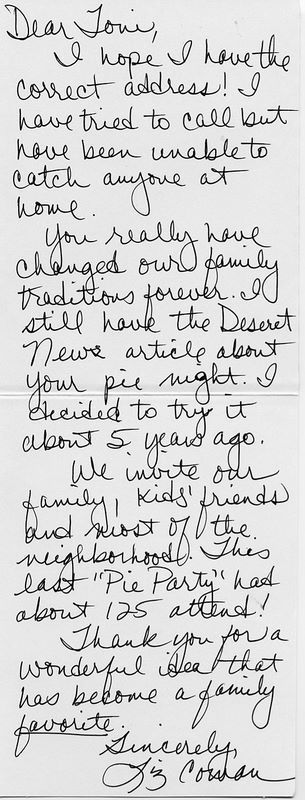 Dear Toni,
I hope I have the
correct address! I
have tried to call but
have been unable to
catch anyone at
home.
You really have
changed our family
traditions forever. I
still have the Deseret
News article about
your pie night. I
decided to try it
about 5 years ago.
We invite our
family, kids' friends
and most of the
neighborhood. This
last "Pie Party" had
about 125 attend!
Thank you for a
wonderful idea that
has become a family
favorite.
Sincerely,
Liz